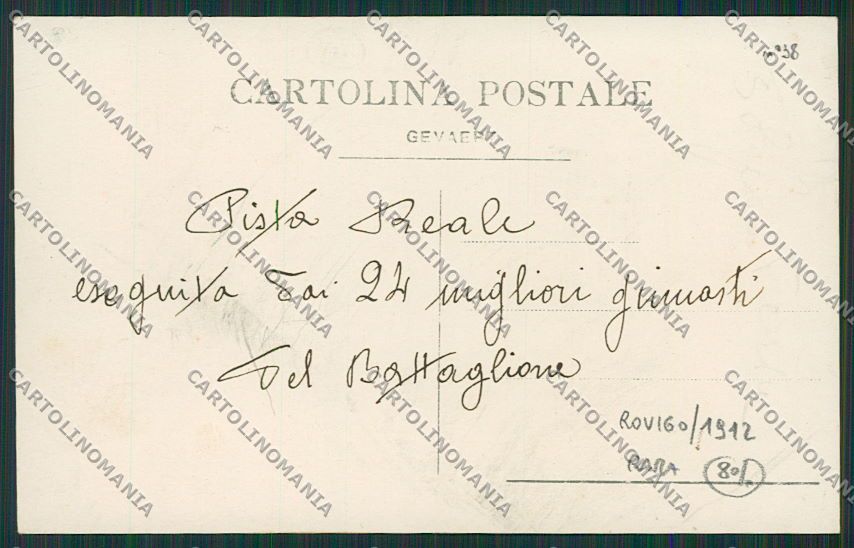 CARTOLINA POSTALE
GEVAERT
Pista Reale
eseguita dai 24 migliori ginnasti
del Battaglione
ROVIGO/1912
RARA
80/.
CARTOLINOMANIA